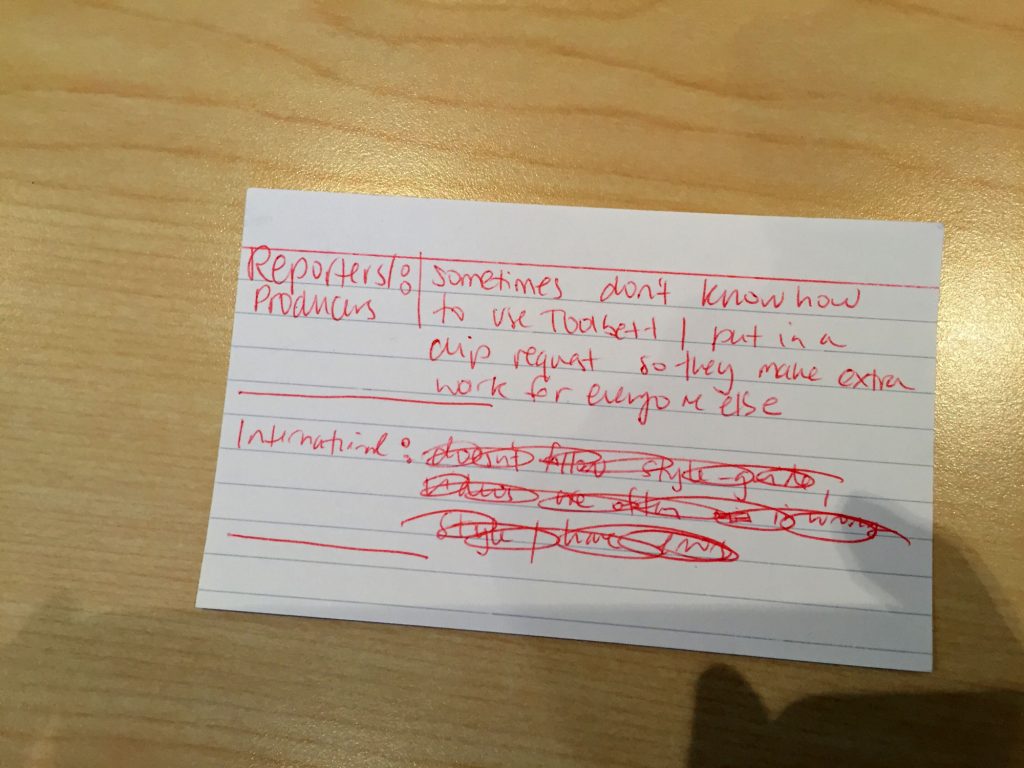 Reporters/: sometimes don't know how
Producers to use Toolbelt / put in a
clip request so they make extra
work for everyone else
International: doesn't follow style-guide,
are often is wrong
style / have